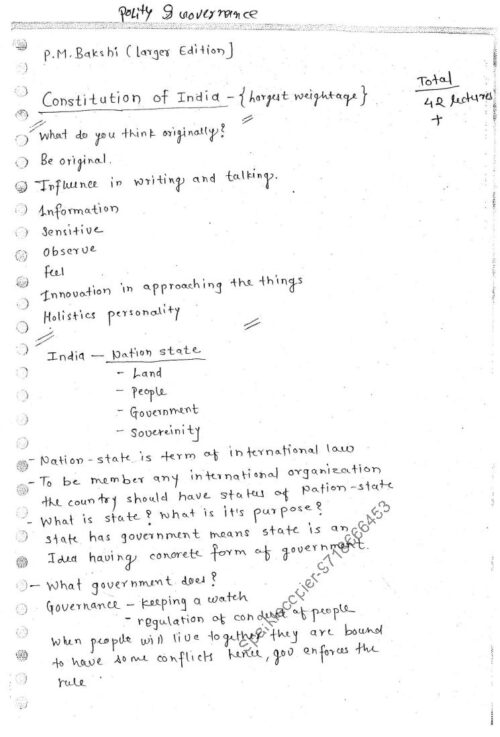 Polity & Governance
P.M. Bakshi (Larger Edition]
Total
42 lectures
+
Constitution of India - {largest weightage}
What do you think originally?
Be original.
Influence in writing and talking.
Information
Sensitive
Observe
Feel
Innovation in approaching the things
Holistics personality
India — Nation state
- Land
- People
- Government
- Sovereinity
- Nation-state is term of international law
- To be member any international organization
the country should have status of Nation-state
- What is state? What is it's purpose?
State has government means state is an
Idea having concrete form of government.
- What government does?
Governance - keeping a watch
- regulation of conduct of people
When people will live together they are bound
to have some conflicts hence, gov enforces the
rule